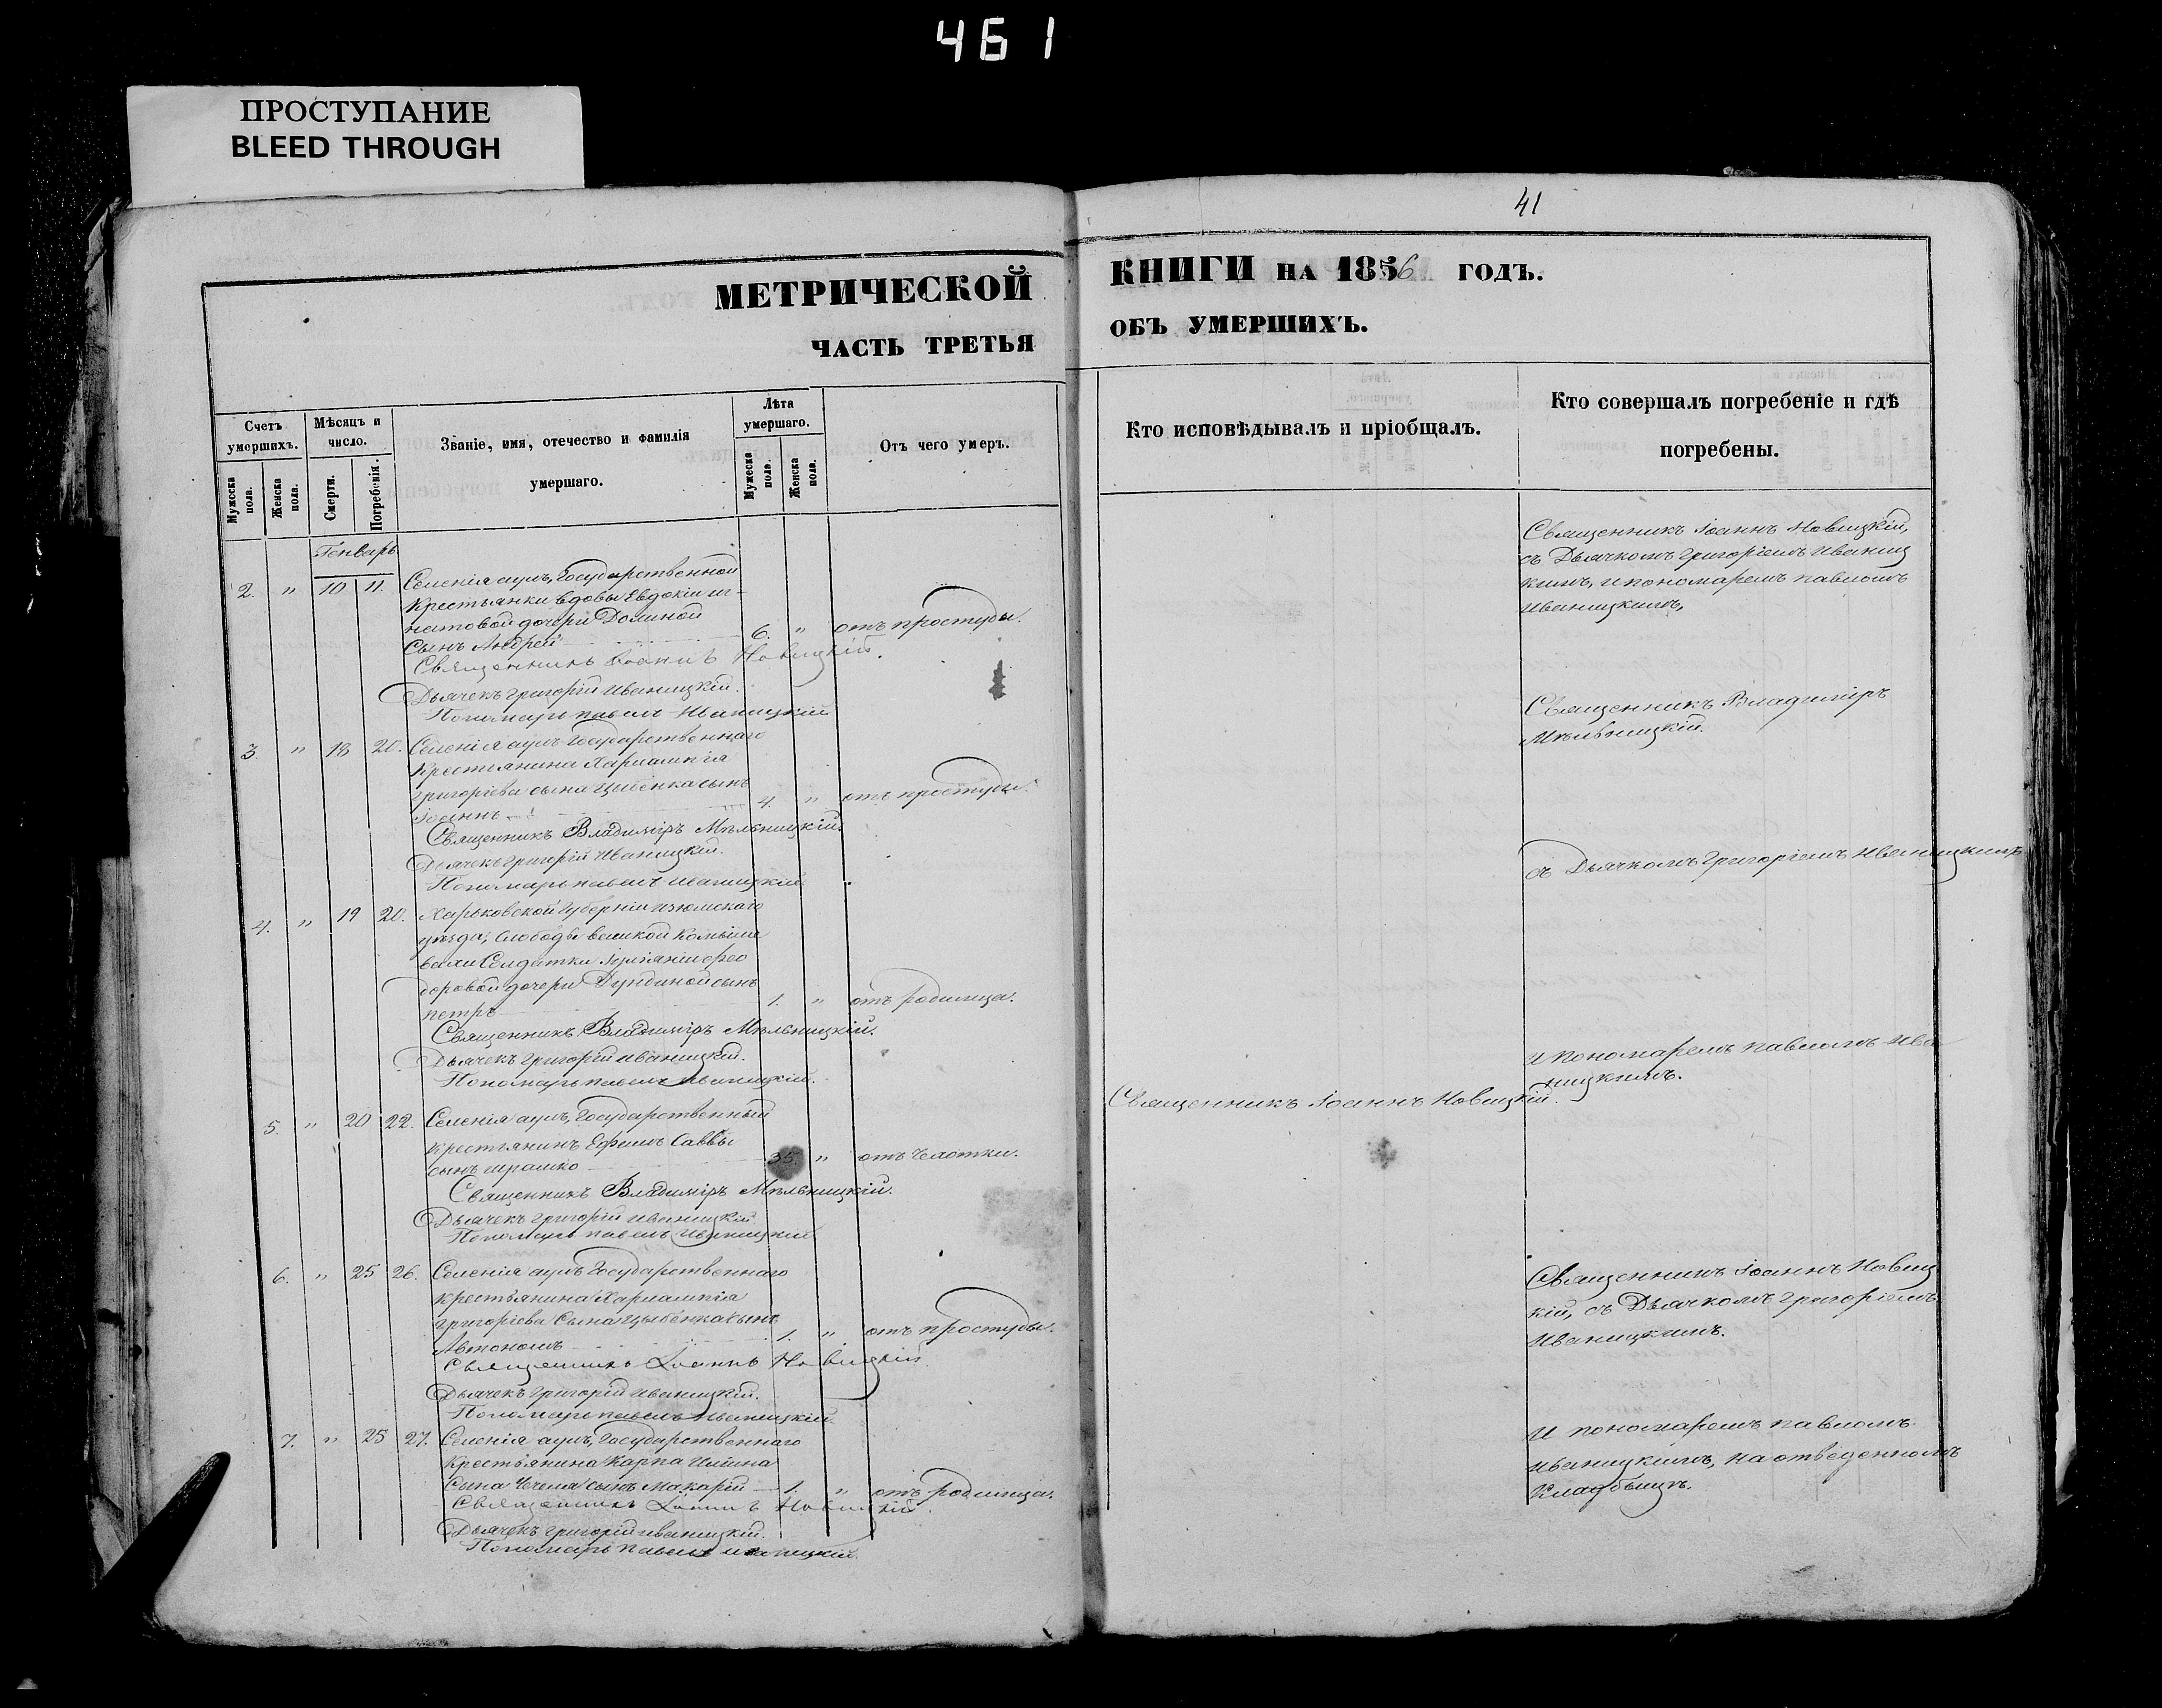 461
ПРОСТУПАНИЕ
BLEED THROUGH
41
МЕТРИЧЕСКОЙ
ЧАСТЬ ТРЕТЬЯ
КНИГИ НА 1856 ГОДЪ.
ОБЪ УМЕРШИХЪ.
Счетъ умершихъ.
Мужеска пола.
Женска пола.
Мѣсяцъ и число.
Смерти.
Погребенія.
Званіе, имя, отечество и фамилія
умершаго.
Лѣта умершаго.
Мужеска пола.
Женска пола.
Отъ чего умеръ.
Кто исповѣдывалъ и пріобщалъ.
Кто совершалъ погребеніе и гдѣ
погребены.
Генварь
2. " 10 11. Селенія аулъ, Государственной
Крестьянки вдовы Евдокіи иг-
натовой дочери Долиной
Сынъ Андрей 6. " отъ простуды.
Священникъ Іоаннъ Новицкій.
Дьячекъ григорій Иваницкій.
Пономарь павелъ Иваницкій
3. " 18 20. Селенія аулъ Государственнаго
Крестьянина Харлампія
григоріева сына Цыбенка сынъ
Іоаннъ 4. " отъ простуды.
Священникъ Владиміръ Мѣльницкій.
Дьячекъ григорій Иваницкій.
Пономарь павелъ Иваницкій
4. " 19 20. Харьковской Губерніи изюмскаго
уѣзда, Слободы великой Комыше
вахи Солдатки ѳео
доровой дочери сынъ
петръ 1. " отъ родимца.
Священникъ Владиміръ Мѣльницкій.
Дьячекъ григорій иваницкій.
Пономарь павелъ иваницкій.
5. " 20 22. Селенія аулъ, Государственный
Крестьянинъ Ефимъ Саввы
сынъ 35. " отъ Чахотки.
Священникъ Владиміръ Мѣльницкій.
Дьячекъ григорій иваницкій
Пономарь павелъ иваницкій
6. " 25 26. Селенія аулъ Государственнаго
крестьянина Харлампія
григоріева Сына Цыбенка сынъ
Автономъ 1. " отъ простуды.
Священникъ Іоаннъ Новицкій
Дьячекъ григорій иваницкій.
Пономарь павелъ иваницкій
7. " 25 27. Селенія аулъ, Государственнаго
Крестьянина Карпа Ильина
Сына Чечеля сынъ Макарій 1. " отъ родимца.
Священникъ Іоаннъ Новицкій.
Дьячекъ григорій иваницкій.
Пономарь павелъ иваницкій.
Священникъ Іоаннъ Новицкій.
Священникъ Іоаннъ Новицкій,
съ Дьячкомъ Григоріемъ Иваниц
кимъ, и пономаремъ павломъ
Иваницкимъ,
Священникъ Владиміръ
Мѣльницкій.
съ Дьячкомъ Григоріемъ Иваницкимъ
и пономаремъ павломъ Ива
ницкимъ.
Священникъ Іоаннъ Новиц
кій, съ Дьячкомъ Григоріемъ
Иваницкимъ.
и пономаремъ павломъ
иваницкимъ, на отведенномъ
Кладбищѣ.